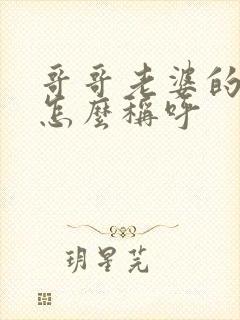 哥哥老婆的
怎麼稱呼
玥星芫